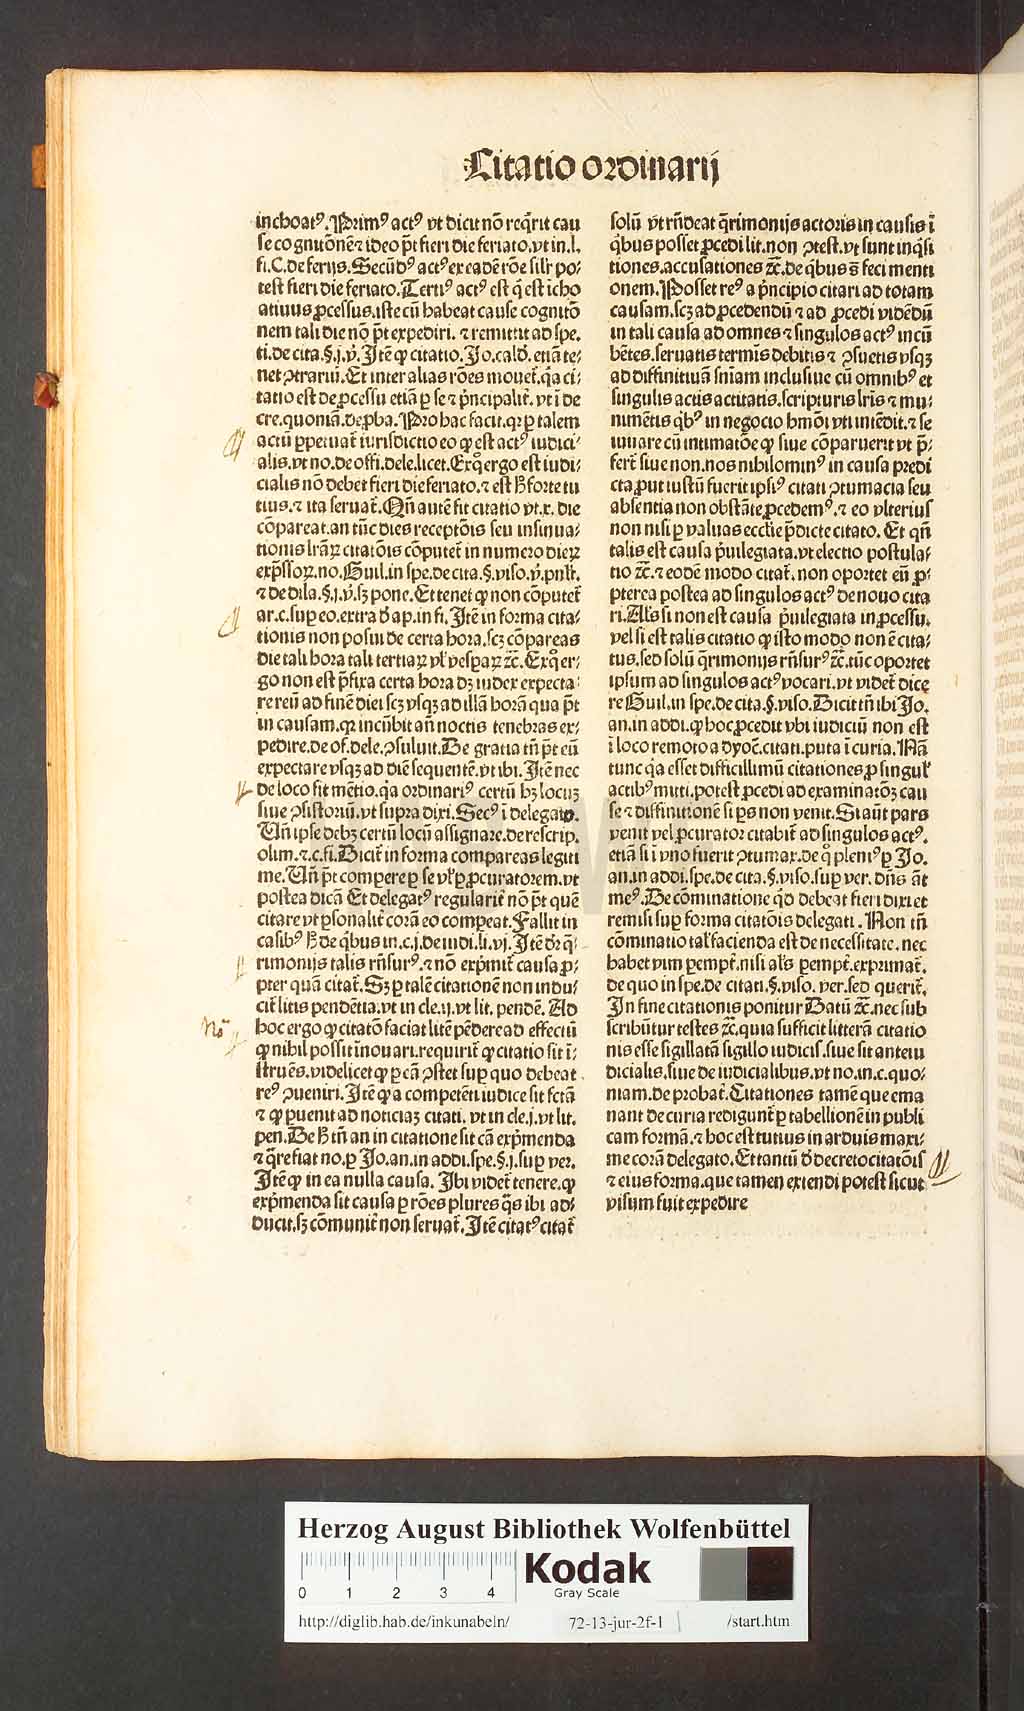 Citatio ordinarij
inchoatꝰ. Primꝰ actꝰ vt dicit nō reqͥrit cau
se cognitiōnē ⁊ ideo p̄t fieri die feriato. vt in. l.
fi. C. de ferijs. Secūdꝰ actꝰ ex eadē rōe silr̄ po⸗
test fieri die feriato. Tertiꝰ actꝰ est q̄ est īcho
atiuus ꝓcessus. iste cū habeat cause cognitō
nem tali die nō p̄t expediri. ⁊ remittit ad spe.
ti. de cita. §. j. ꝟ. Itē ꝙ citatio. Jo. cald̄. etiā te⸗
net ꝯtrariū. Et inter alias rōes mouet̄. qͥa ci⸗
tatio est de ꝓcessu etiā ꝑ se ⁊ pͥncipalit̄. vt ī de
cre. quoniā. de ꝓba. Pro hac facit. qꝛ ꝑ talem
actū ꝑpetuat̄ iurisdictio eo ꝙ est actꝰ iudici⸗
alis. vt no. de offi. dele. licet. Ex qͦ ergo est iudi⸗
cialis nō debet fieri die feriato. ⁊ est h̄ forte tu
tius. ⁊ ita seruat̄. Qn̄ autē fit citatio vt. x. die
cōpareat. an tūc dies receptōis seu insinua⸗
tionis lr̄aꝝ citatōis cōputet̄ in numero dieꝝ
exp̄ssoꝝ. no. Guil. in spe. de cita. §. viso. ꝟ. pnlt̄.
⁊ de dila. §. j. ꝟ. sꝫ pone. Et tenet ꝙ non cōputet̄
ar. c. sup eo. extra d̄ ap. in fi. Itē in forma cita⸗
tionis non posui de certa hora. scꝫ cōpareas
die tali hora tali tertiaꝝ vl̓ vespaꝝ ⁊c̄. Ex qͦ er⸗
go non est p̄fixa certa hora dꝫ iudex expecta⸗
re reū ad finē diei scꝫ vsqꝫ ad illā horā qua p̄t
in causam. qꝛ incūbit an̄ noctis tenebras ex⸗
pedire. de of. dele. ꝯsuluit. De gratia tn̄ p̄t eū
expectare vsqꝫ ad diē sequentē. vt ibi. Itē nec
de loco fit mētio. qͥa ordinariꝰ certū hꝫ locuꝫ
siue ꝯsistoriū. vt supra dixi. Secꝰ ī delegato.
Vn̄ ipse debꝫ certū locū assignare. de rescrip.
olim. ⁊. c. fi. Dicit̄ in forma compareas legiti
me. Vn̄ p̄t compere ꝑ se vl̓ ꝑ ꝓcuratorem. vt
postea dicā Et delegatꝰ regularit̄ nō p̄t quē
citare vt ꝑsonalit̄ corā eo compeat. Fallit in
casibꝰ h̄ de qͥbus in. c. j. de iudi. li. vj. Itē dr̄ qͥ⸗
rimonijs talis rn̄surꝰ. ⁊ nō expͥmit̄ causa ꝓ⸗
pter quā citat̄. Sꝫ ꝑ talē citationē non indu⸗
cit̄ litis pendētia. vt in cle. ij. vt lit. pendē. Ad
hoc ergo ꝙ citatō faciat litē pēdere ad effectū
ꝙ nihil possit īnouari. requirit̄ ꝙ citatio sit ī⸗
struēs. videlicet ꝙ ꝑ eā ꝯstet sup quo debeat
reꝰ ꝯueniri. Itē ꝙ a competēti iudice sit fctā
⁊ ꝙ ꝑuenit ad noticiaꝫ citati. vt in cle. j. vt lit.
pen. De h̄ tn̄ an in citatione sit cā expͥmenda
⁊ qͣre fiat no. ꝑ Jo. an. in addi. spe. §. j. sup ver.
Itē ꝙ in ea nulla causa. Ibi videt̄ tenere. ꝙ
expͥmenda sit causa ꝑ rōes plures qͣs ibi ad⸗
ducit. sꝫ cōmunit̄ non seruat̄. Itē citatꝰ citat̄
solū vt rn̄deat qͥrimonijs actoris in causis ī
qͥbus posset ꝓcedi lit. non ꝯtest. vt sunt inqͥsi
tiones. accusationes ⁊c̄. de qͥbus s̄ feci menti
onem. Posset reꝰ a pͥncipio citari ad totam
causam. scꝫ ad ꝓcedendū ⁊ ad ꝓcedi vidēdū
in tali causa ad omnes ⁊ singulos actꝰ incū
bētes. seruatis termīs debitis ⁊ ꝯsuetis vsqꝫ
ad diffinitiuā sn̄iam inclusiue cū omnibꝰ et
singulis actis actitatis. scripturis lr̄is ⁊ mu⸗
numētis qͥbꝰ in negocio hmōi vti intēdit. ⁊ se
iuuare cū intimatōe ꝙ siue cōparuerit vt p̄⸗
fert̄ siue non. nos nihilominꝰ in causa predi
cta ꝓut iustū fuerit ipsiꝰ citati ꝯtumacia seu
absentia non obstāte ꝓcedemꝰ. ⁊ eo vlterius
non nisi ꝑ valuas eccl̄ie p̄dicte citato. Et qn̄
talis est causa pͥuilegiata. vt electio postula⸗
tio ⁊c̄. ⁊ eodē modo citat̄. non oportet eū ꝓ⸗
pterea postea ad singulos actꝰ de nouo cita
ri. Al̓s si non est causa pͥuilegiata in ꝓcessu.
vel si est talis citatio ꝙ isto modo non ē cita⸗
tus. sed solū qͥrimonijs rn̄surꝰ ⁊c̄. tūc oportet
ipsum ad singulos actꝰ vocari. vt videt̄ dice
re Guil. in spe. de cita. §. viso. Dicit tn̄ ibi Jo.
an. in addi. ꝙ hoc ꝓcedit vbi iudiciū non est
ī loco remoto a dyoc̄. citati. puta ī curia. Nā
tunc qͥa esset difficillimū citationes ꝓ singul̓
actibꝰ mitti. potest ꝓcedi ad examinatōꝫ cau
se ⁊ diffinitionē si ps non venit. Si aūt pars
venit vel ꝓcurator citabit̄ ad singulos actꝰ.
etiā si ī vno fuerit ꝯtumax. de qͦ pleniꝰ ꝑ Jo.
an. in addi. spe. de cita. §. viso. sup ver. dn̄s āt
meꝰ. De cōminatione qͦd debeat fieri dixi et
remisi sup forma citatōis delegati. Non tn̄
cōminatio tal̓ facienda est de necessitate. nec
habet vim ꝑempt̄. nisi al̓s ꝑempt̄. exprimat̄.
de quo in spe. de citati. §. viso. ver. sed querit̄.
In fine citationis ponitur Datū ⁊c̄. nec sub
scribūtur testes ⁊c̄. quia sufficit litterā citatio
nis esse sigillatā sigillo iudicis. siue sit anteiu
dicialis. siue de iudicialibus. vt no. in. c. quo⸗
niam. de probat̄. Citationes tamē que ema
nant de curia redigunt̄ ꝑ tabellionē in publi
cam formā. ⁊ hoc est tutius in arduis maxi⸗
me corā delegato. Et tantū d̄ decreto citatōis
⁊ eius forma. que tamen extendi potest sicut
visum fuit expedire
Herzog August Bibliothek Wolfenbüttel
0 1 2 3 4
Kodak
Gray Scale
http://diglib.hab.de/inkunabeln/ 72-13-jur-2f-1 /start.htm